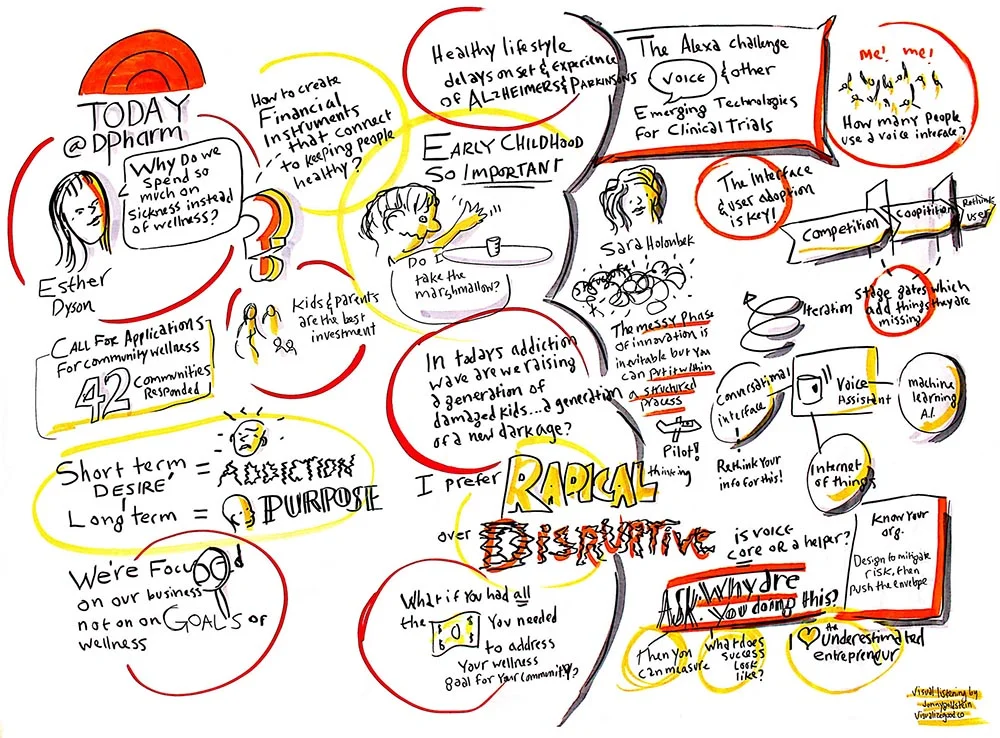 TODAY
@DPharm
Why Do we
spend so
much on
sickness instead
of wellness?
Esther
Dyson
How to create
Financial
Instruments
that connect
to keeping people
healthy?
?
Kids & parents
are the best
investment
CALL FOR Applications
For community wellness
42 Communities
Responded
Short term = ADDICTION
DESIRE
Long term = PURPOSE
We're Focused
on our business
not on on GOAL's of
wellness
Healthy lifestyle
delays onset & Experience
of ALZHEIMERS & PARKINSONS
EARLY CHILDHOOD
SO IMPORTANT
Do I
take the
marshmallow?
In todays addiction
wave are we raising
a generation of
damaged kids...a generation
of a new dark age?
I prefer RADICAL
over DISRUPTIVE
What if you had all
the $ You needed
to address
your wellness
goal for your community?
The Alexa challenge
VOICE & other
Emerging Technologies
for Clinical Trials
me! me!
How many people
use a voice interface?
Sara Holoubek
The interface
& user adoption
is key!
Competition
Coopitition
Rethink
user
Iteration
stage gates which
add things they are
missing
The messy phase
of innovation is
inevitable but you
can put it within
a structured
process
Pilot!
thinking
Conversational
interface
!
Rethink Your
info for this!
Voice
Assistant
machine
learning
A.I.
Internet
of things
is voice
core or a helper?
Know Your
org.
Design to mitigate
risk, then
push the envelope
ASK: Why are
You doing this?
Then you
can measure
what does
success
look
like?
I the
underestimated
entrepreneur
Visual listening by
Jonnygoldstein
Visualizegood.co